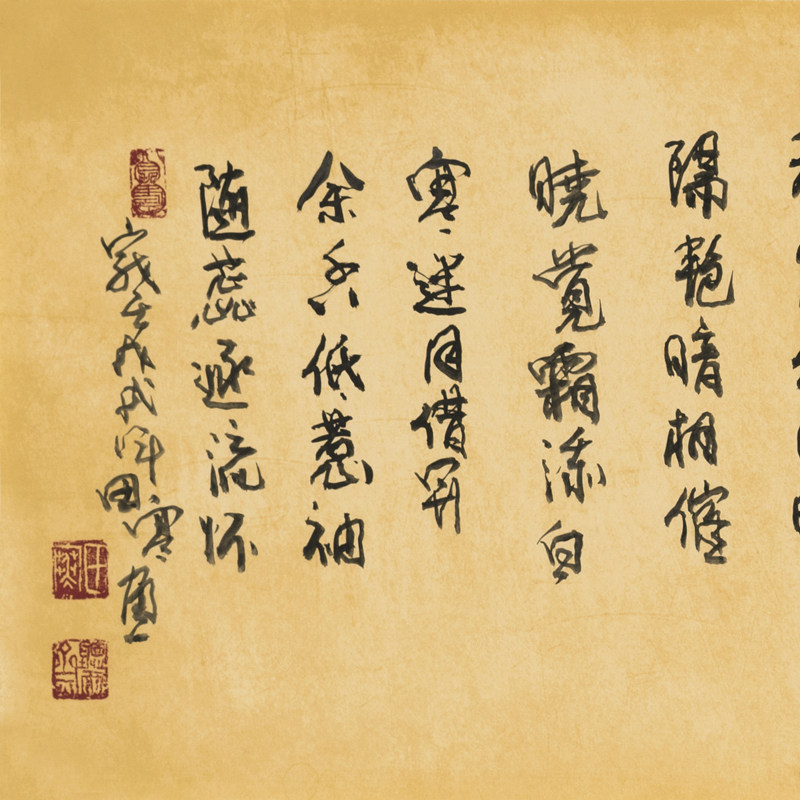 隔艳暗相催
曉覺霜添白
寒迷月借開
余香低惹袖
隨蕊逐流杯
歲在戊戌年田寒